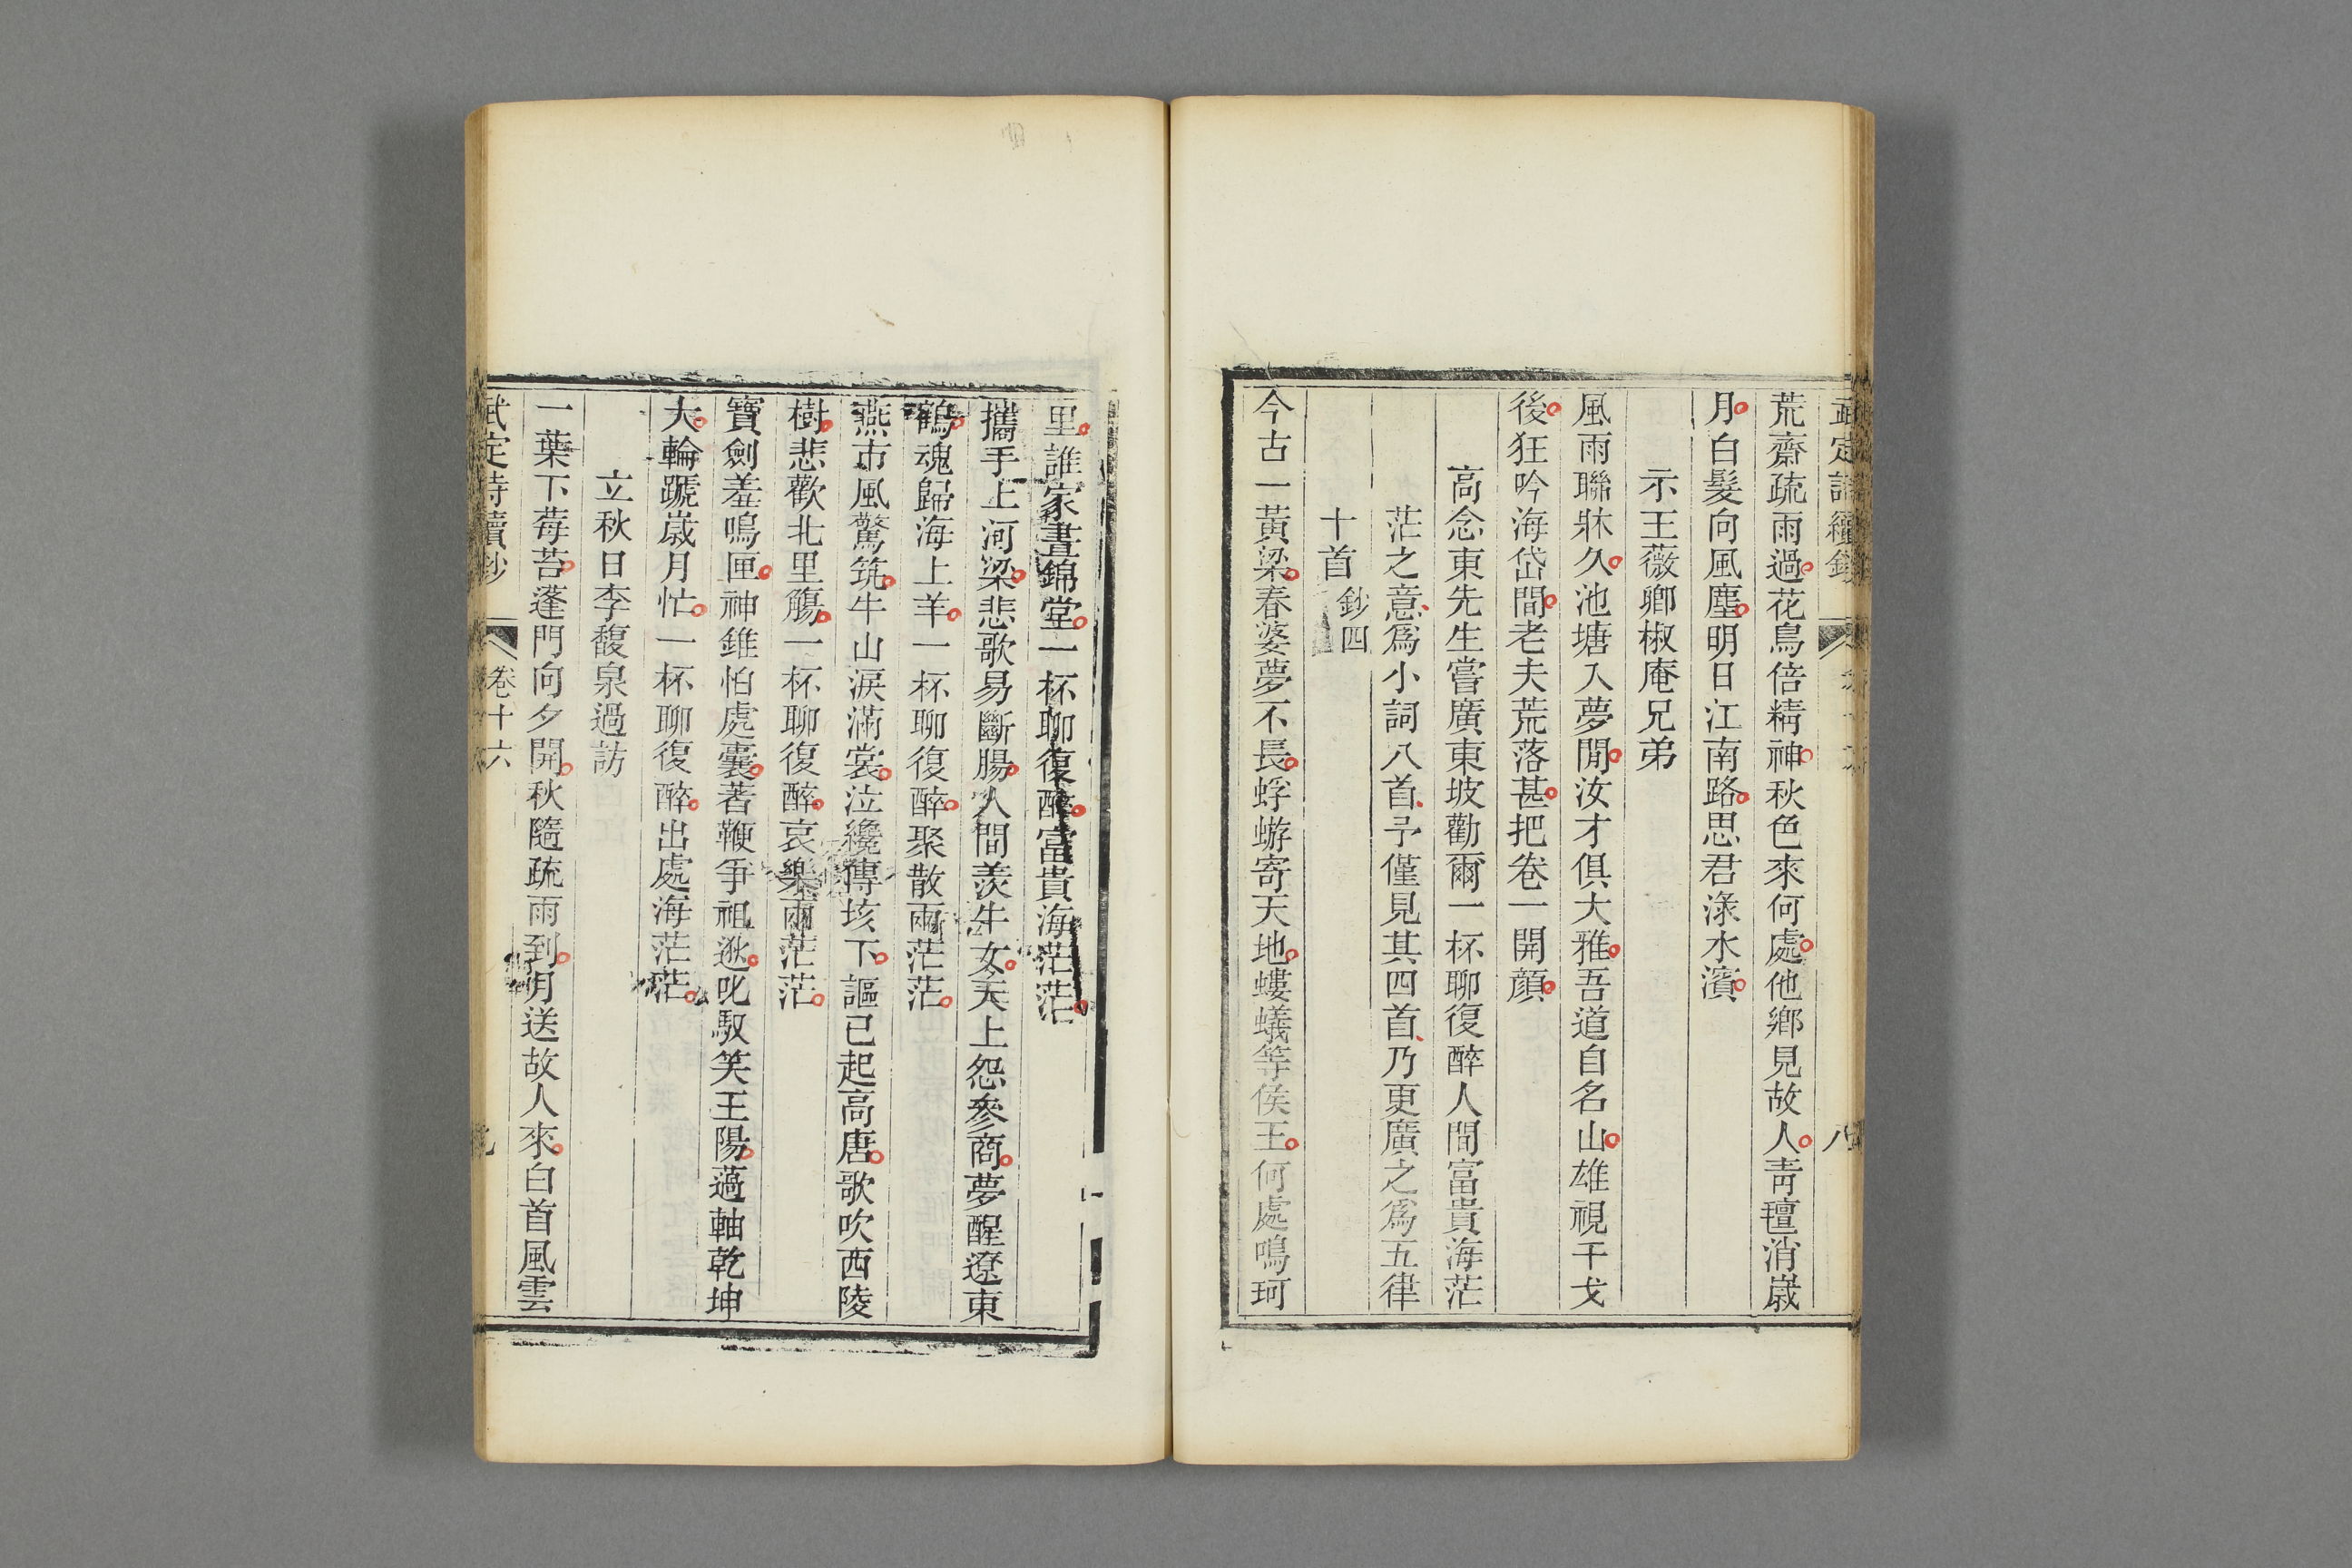 武定詩續鈔
八
荒齋疏雨過花鳥倍精神秋色來何處他鄉見故人靑氊消歲
月白髮向風塵明日江南路思君淥水濱
示王薇卿椒庵兄弟
風雨聯牀久池塘入夢閒汝才俱大雅吾道自名山雄視干戈
後狂吟海岱間老夫荒落甚把卷一開顏
高念東先生嘗廣東坡勸爾一杯聊復醉人間富貴海茫
茫之意爲小詞八首予僅見其四首乃更廣之爲五律
十首 鈔四
今古一黃梁春婆夢不長蜉蝣寄天地螻蟻等侯王何處鳴珂
里誰家晝錦堂一杯聊復醉富貴海茫茫
攜手上河梁悲歌易斷腸人間羨牛女天上怨參商夢醒遼東
鶴魂歸海上羊一杯聊復醉聚散兩茫茫
燕市風驚筑牛山淚滿裳泣纔傳垓下謳已起高唐歌吹西陵
樹悲歡北里觴一杯聊復醉哀樂兩茫茫
寶劍羞鳴匣神錐怕處囊著鞭爭祖逖叱馭笑王陽薖軸乾坤
大輪蹏歲月忙一杯聊復醉出處海茫茫
立秋日李馥泉過訪
一葉下莓苔蓬門向夕開秋隨疏雨到月送故人來白首風雲
武定詩續鈔
卷十六
九